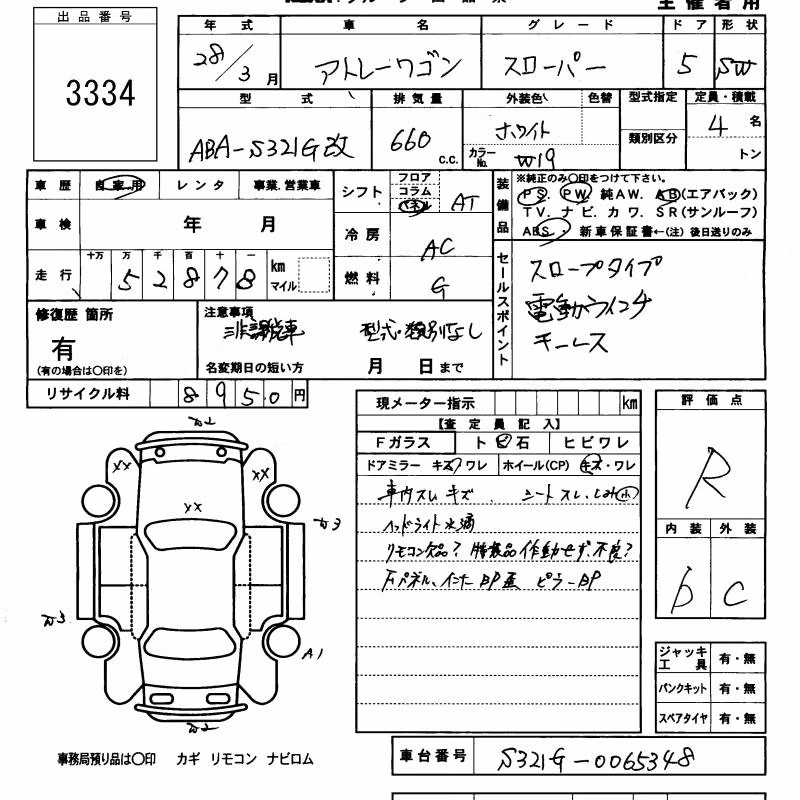 主催者用
出品番号
3334
年式 車名 グレード ドア 形状
28/3月 アトレーワゴン スローパー 5 SW
型式 排気量 外装色 色替 型式指定 定員・積載
ABA-S321G改 660 c.c. ホワイト 類別区分 4名
カラーNo. W19 トン
車歴 自家用 レンタ 事業.営業車
シフト フロア コラム パネル AT
装備品 ※純正のみ〇印をつけて下さい。
PS. PW. 純AW. AB(エアバック)
TV. ナビ. カワ. SR(サンルーフ)
ABS. 新車保証書←(注) 後日送りのみ
車検 年 月
冷房 AC
走行 十万 万 千 百 十 一
52878 km マイル
燃料 G
セールスポイント
スロープタイプ
電動ウインチ
キーレス
修復歴 箇所
有
(有の場合は〇印を)
注意事項
非課税車 型式・類別なし
名変期日の短い方 月 日まで
リサイクル料 8950円
現メーター指示 km
【査定員記入】
Fガラス トビ石 ヒビワレ
ドアミラー キズ・ワレ ホイール(CP) キズ・ワレ
車内スレ キズ シートスレ.シミ小
ヘッドライト水滴
リモコン欠品?
作動せず.不良?
Fパネル、インナーBP歪 ピラーBP
評価点
R
内装 外装
D C
XX XX
XX
A1
ジャッキ工具 有・無
パンクキット 有・無
スペアタイヤ 有・無
事務局預り品は〇印 カギ リモコン ナビロム
車台番号 S321G-0065348